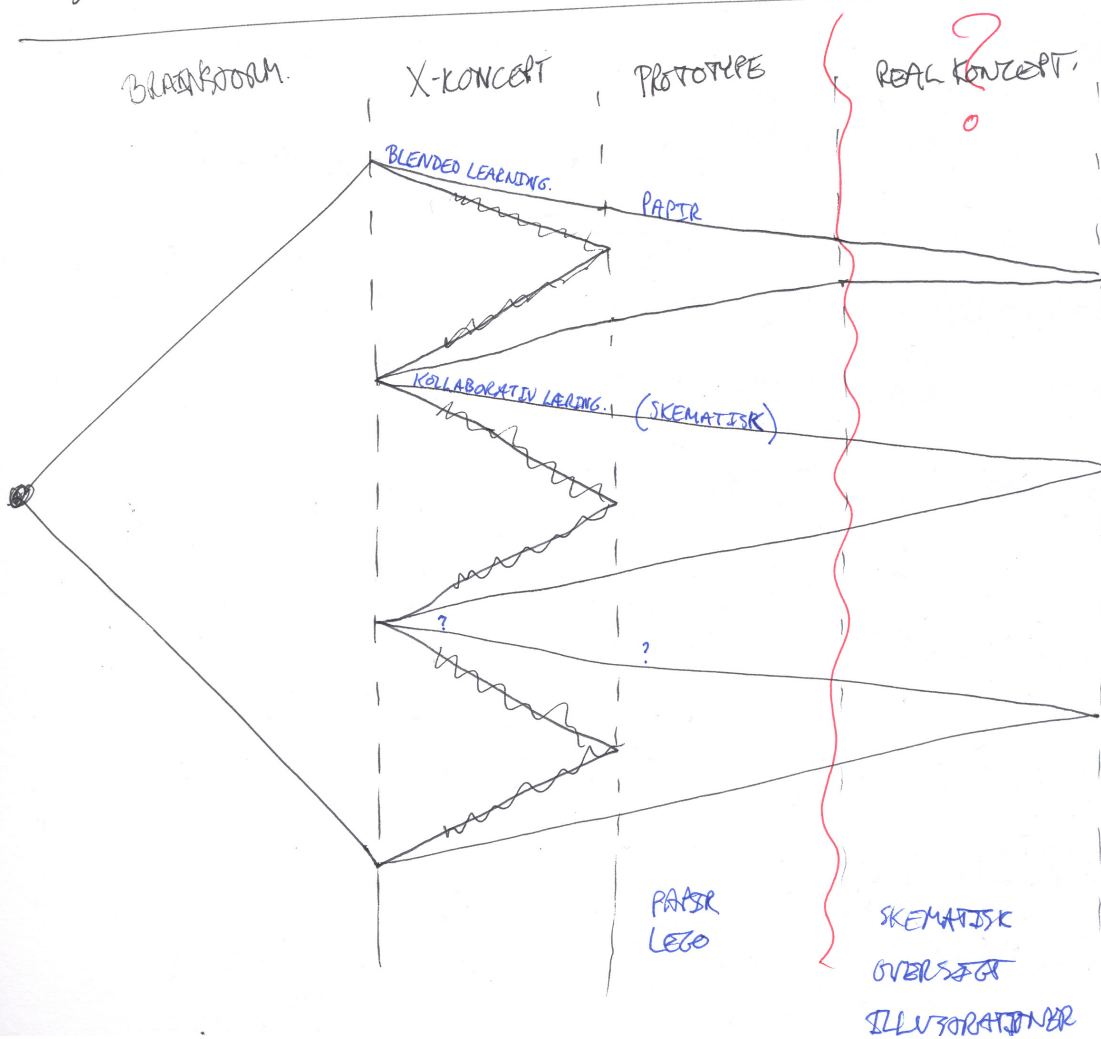 BRAINSTORM.
X-KONCEPT
PROTOTYPE
REAL KONCEPT.
?
BLENDED LEARNING.
PAPIR
KOLLABORATIV LÆRING.
(SKEMATISK)
?
?
PAPIR
LEGO
SKEMATISK
OVERSIGT
ILLUSTRATIONER